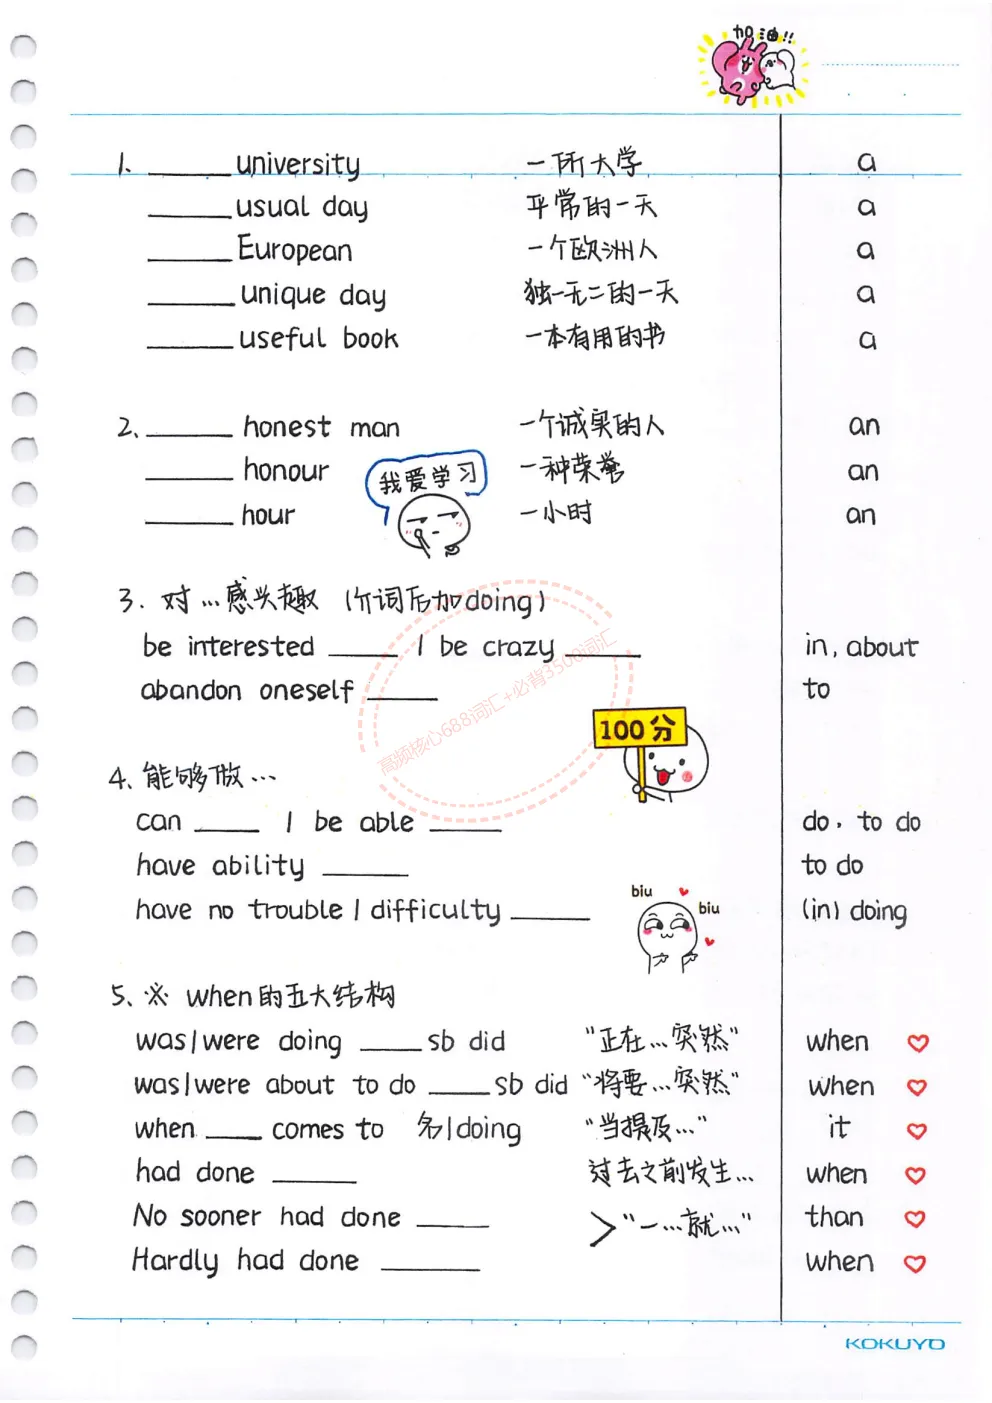 加油!!
1、______ university 一所大学 a
______ usual day 平常的一天 a
______ European 一个欧洲人 a
______ unique day 独一无二的一天 a
______ useful book 一本有用的书 a
2、______ honest man 一个诚实的人 an
______ honour 一种荣誉 an
我爱学习
______ hour 一小时 an
3. 对...感兴趣 (介词后加doing)
be interested _____ / be crazy _____ in, about
abandon oneself _____ to
高频核心688词汇+必背3500词汇
100分
4、能够做...
can _____ / be able _____ do, to do
have ability _____ to do
have no trouble / difficulty _____ (in) doing
biu
biu
5、※ when的五大结构
was/were doing ____ sb did "正在...突然" when
was/were about to do ____ sb did "将要...突然" when
when ____ comes to 名/doing "当提及..." it
had done _____ 过去之前发生... when
No sooner had done _____ than
>"一...就..."
Hardly had done ______ when
KOKUYO